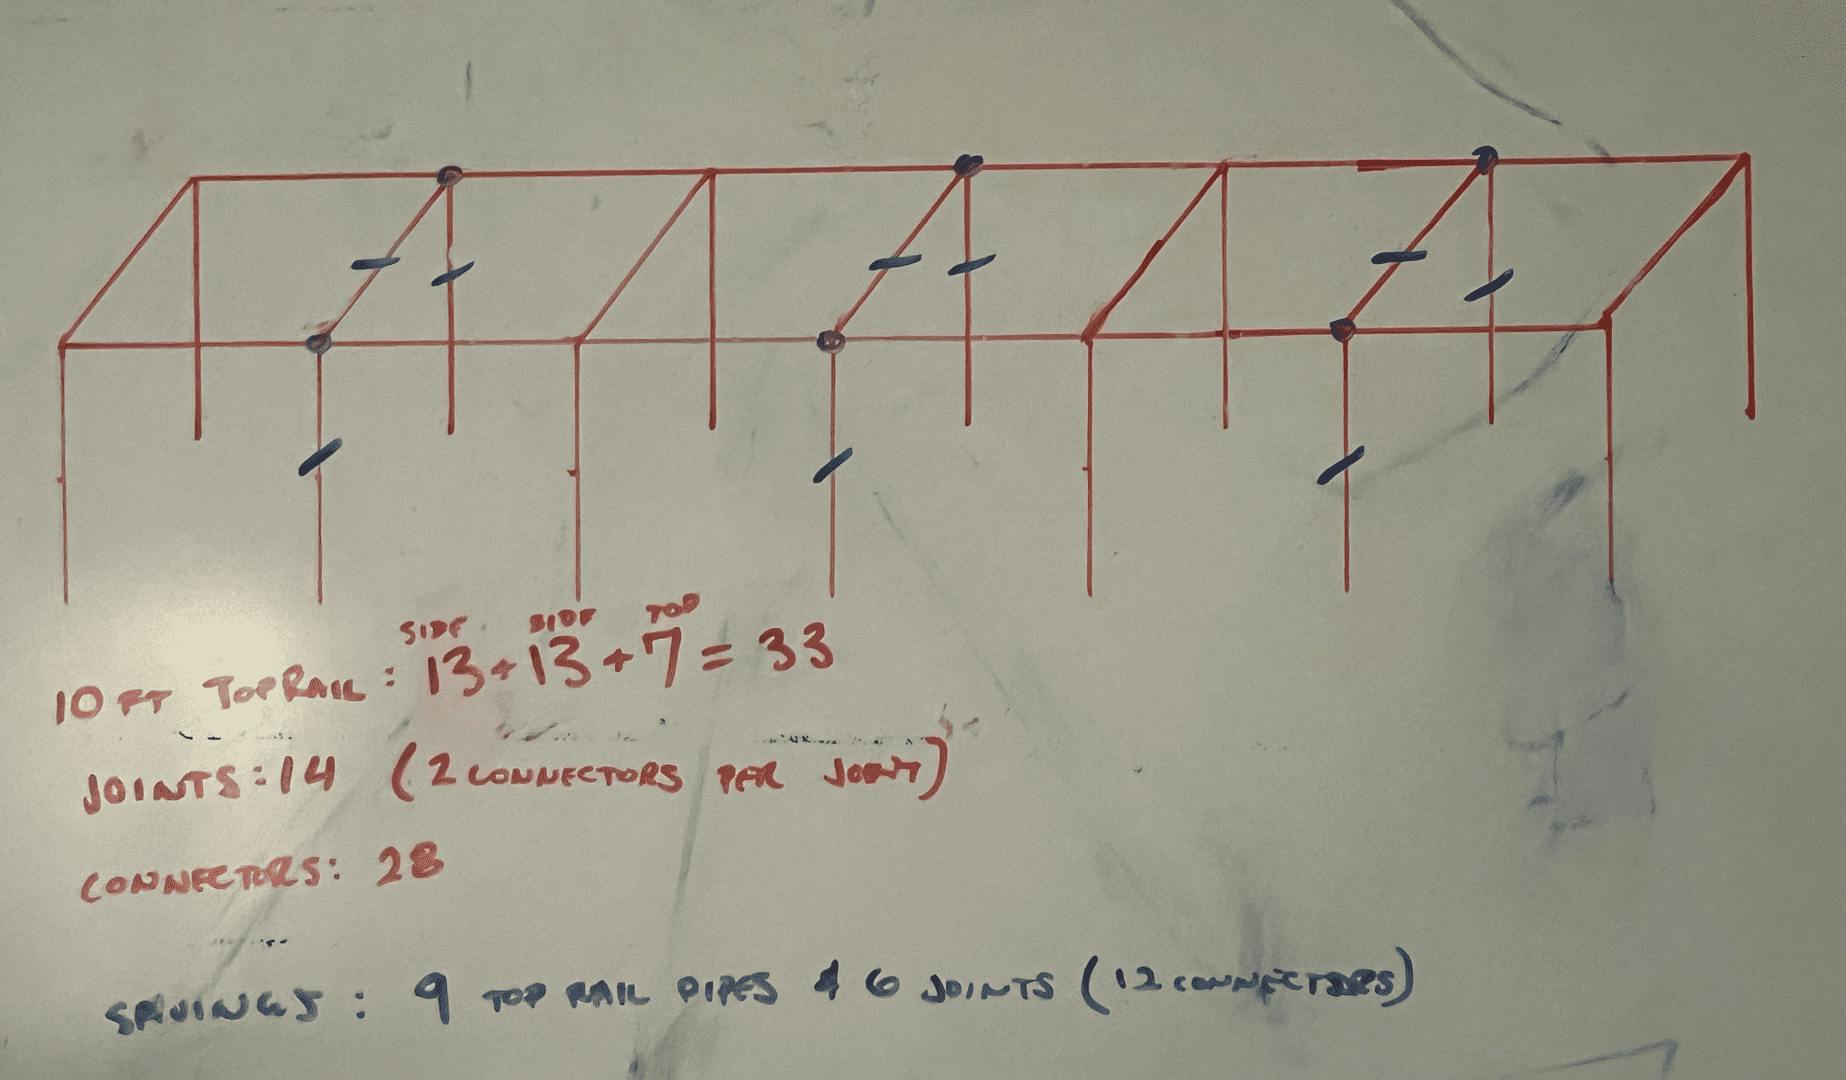 SIDE SIDE TOP
10 FT TOP RAIL: 13+13+7=33
JOINTS:14 (2 CONNECTORS PER JOINT)
CONNECTORS: 28
SAVINGS: 9 TOP RAIL PIPES & 6 JOINTS (12 CONNECTORS)